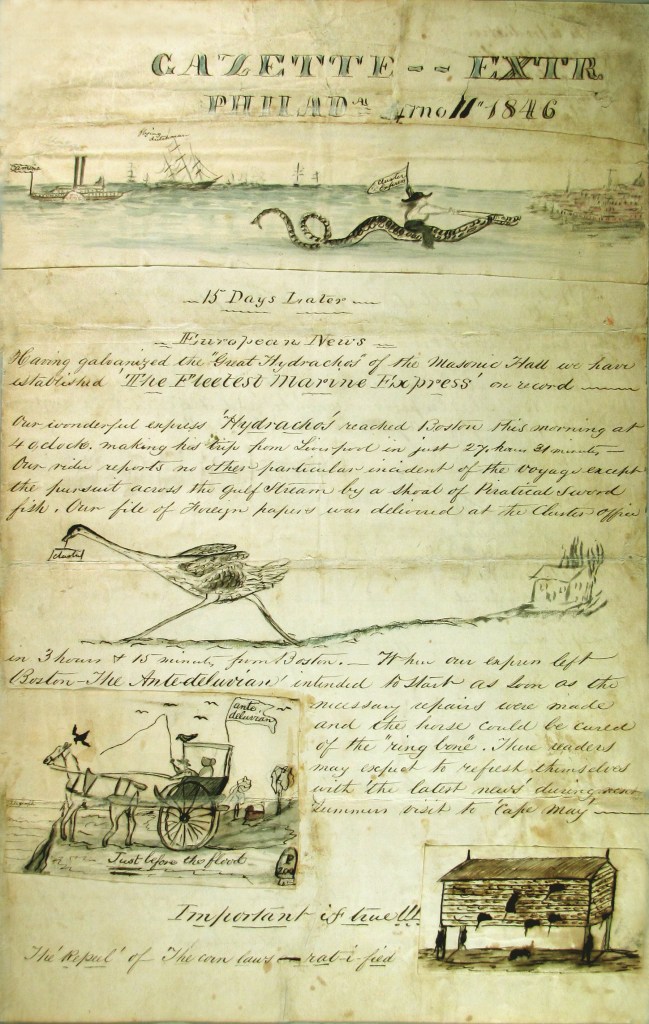 GAZETTE -- EXTR
PHILADA 4mo 11th 1846
Flying
dutchman
Cluster
Express
15 Days Later
European News
Having galvanized the "Great Hydrachos" of the Masonic Hall we have
established 'The Fleetest Marine Express' on record
Our wonderful express 'Hydrachos' reached Boston this morning at
4 oclock. making his trip from Liverpool in just 27, hours 31 minutes —
Our rider reports no other particular incident of the voyage except
the pursuit across the Gulf Stream by a shoal of Piratical sword
fish. Our file of Foreign papers was delivered at the Cluster Office
Cluster
in 3 hours & 15 minutes from Boston. — When our express left
Boston - The Antedeluvian' intended to start as soon as the
necessary repairs were made
and the horse could be cured
of the "ring bone". There readers
may expect to refresh themselves
with 'the latest news' during next
summers visit to 'Cape May'
ante
deluvian
Just before the flood
P
Important if true!!!
The 'Repeal' of 'The corn laws — rat-i-fied